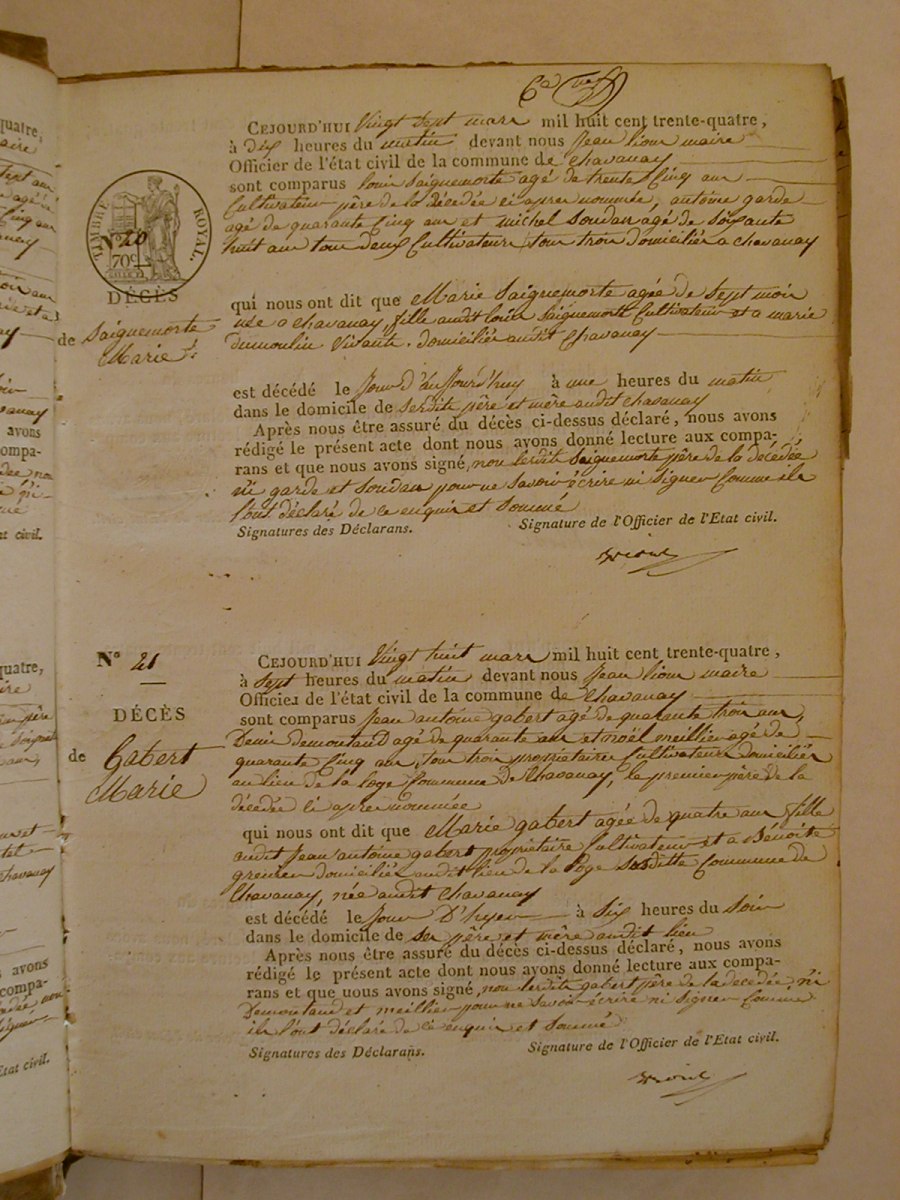 CEJOURD'HUI Vingt Sept mars mil huit cent trente-quatre,
à dix heures du matin devant nous Jean lioud maire
Officier de l'état civil de la commune de Chavanay
sont comparus louis Saignemorte agé de trente Cinq ans
Cultivateur père de la décedée ci apres nommée, antoine garde
agé de quarante Cinq ans et michel Soudan agé de Soixante
huit ans tous deux Cultivateurs, tous trois domiciliés a Chavanay
TIMBRE ROYAL.
N° 20
70c
DÉCÈS
de Saignemorte
Marie
qui nous ont dit que Marie Saignemorte agée de Sept mois
née a Chavanay, fille audit louis Saignemorte Cultivateur et a marie
dumoulin Vivants, domiciliés audit Chavanay
est décédé le Jour d'aujourd'huy à une heures du matin
dans le domicile de Sesdits père et mère audit Chavanay
Après nous être assuré du décès ci-dessus déclaré, nous avons
rédigé le présent acte dont nous avons donné lecture aux compa-
rans et que nous avons signé, non lesdits Saignemorte père de la décedée
ni garde et Soudan pour ne Savoir écrire ni Signer Comme ils
l'ont déclaré de ce enquis et Sommé
Signatures des Déclarans. Signature de l'Officier de l'Etat civil.
N° 21
DÉCÈS
de Gabert
Marie
CEJOURD'HUI Vingt huit mars mil huit cent trente-quatre,
à Sept heures du matin devant nous Jean lioud maire
Officier de l'état civil de la commune de Chavanay
sont comparus Jean antoine gabert agé de quarante trois ans,
Denis demontand agé de quarante ans et noël meillier agé de
quarante Cinq ans, tous trois proprietaires Cultivateurs domiciliés
au lieu de la loge Commune de Chavanay, le premier père de la
décedée ci apres nommée
qui nous ont dit que Marie gabert agée de quatre ans fille
audit Jean antoine gabert proprietaire Cultivateur et a Benoite
domiciliés audit lieu de la loge Susditte Commune de
Chavanay, née audit Chavanay
est décédé le Jour D'hyer à Six heures du Soir
dans le domicile de Ses père et mère audit lieu
Après nous être assuré du décès ci-dessus déclaré, nous avons
rédigé le présent acte dont nous avons donné lecture aux compa-
rans et que nous avons signé, non lesdits gabert père de la decedée, ni
demontand et meillier pour ne Savoir écrire ni Signer Comme
ils l'ont déclaré de ce enquis et Sommé
Signatures des Déclarans. Signature de l'Officier de l'Etat civil.